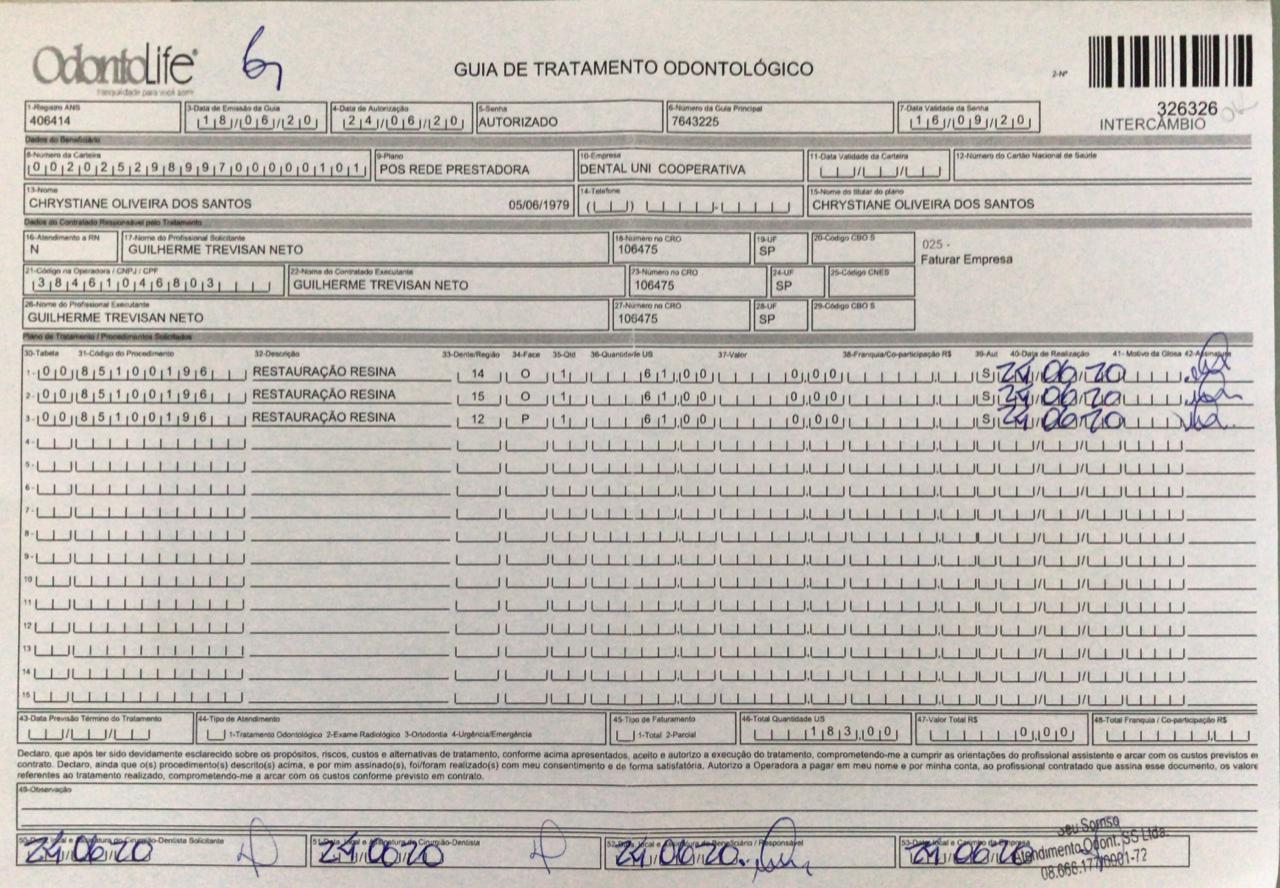 OdontoLife
tranquilidade para você sorrir
GUIA DE TRATAMENTO ODONTOLÓGICO
2-Nº
326326
INTERCÂMBIO OK
1-Registro ANS 3-Data de Emissão da Guia 4-Data de Autorização 5-Senha 6-Número da Guia Principal 7-Data Validade da Senha
406414 18/06/20 24/06/20 AUTORIZADO 7643225 16/09/20
Dados do Beneficiário
8-Número da Carteira 9-Plano 10-Empresa 11-Data Validade da Carteira 12-Número do Cartão Nacional de Saúde
00202529899700000101 POS REDE PRESTADORA DENTAL UNI COOPERATIVA
13-Nome 14-Telefone 15-Nome do titular do plano
CHRYSTIANE OLIVEIRA DOS SANTOS 05/06/1979 CHRYSTIANE OLIVEIRA DOS SANTOS
Dados do Contratado Responsável pelo Tratamento
16-Atendimento a RN 17-Nome do Profissional Solicitante 18-Número no CRO 19-UF 20-Código CBO S
N GUILHERME TREVISAN NETO 106475 SP
025 -
Faturar Empresa
21-Código na Operadora / CNPJ / CPF 22-Nome do Contratado Executante 23-Número no CRO 24-UF 25-Código CNES
38461046803 GUILHERME TREVISAN NETO 106475 SP
26-Nome do Profissional Executante 27-Número no CRO 28-UF 29-Código CBO S
GUILHERME TREVISAN NETO 106475 SP
Plano de Tratamento / Procedimentos Solicitados
30-Tabela 31-Código do Procedimento 32-Descrição 33-Dente/Região 34-Face 35-Qtd 36-Quantidade US 37-Valor 38-Franquia/Co-participação R$ 39-Aut 40-Data de Realização 41- Motivo da Glosa 42-Assinatura
1- 00 85100196 RESTAURAÇÃO RESINA 14 O 1 61,00 0,00 S 24/06/20
2- 00 85100196 RESTAURAÇÃO RESINA 15 O 1 61,00 0,00 S 24/06/20
3- 00 85100196 RESTAURAÇÃO RESINA 12 P 1 61,00 0,00 S 24/06/20
4-
5-
6-
7-
8-
9-
10
11
12
13
14
15
43-Data Previsão Término do Tratamento 44-Tipo de Atendimento 45-Tipo de Faturamento 46-Total Quantidade US 47-Valor Total R$ 48-Total Franquia / Co-participação R$
1-Tratamento Odontológico 2-Exame Radiológico 3-Ortodontia 4-Urgência/Emergência 1-Total 2-Parcial 183,00 0,00
Declaro, que após ter sido devidamente esclarecido sobre os propósitos, riscos, custos e alternativas de tratamento, conforme acima apresentados, aceito e autorizo a execução do tratamento, comprometendo-me a cumprir as orientações do profissional assistente e arcar com os custos previstos em
contrato. Declaro, ainda que o(s) procedimento(s) descrito(s) acima, e por mim assinado(s), foi/foram realizado(s) com meu consentimento e de forma satisfatória. Autorizo a Operadora a pagar em meu nome e por minha conta, ao profissional contratado que assina esse documento, os valores
referentes ao tratamento realizado, comprometendo-me a arcar com os custos conforme previsto em contrato.
49-Observação
50-Data, local e Assinatura do Cirurgião-Dentista Solicitante 51-Data, local e Assinatura do Cirurgião-Dentista 52-Data, local e Assinatura do Beneficiário / Responsável 53-Data, local e Carimbo da Empresa
24/06/20 24/06/20 24/06/20 24/06/20
Seu Sorriso
Atendimento Odont. SS Ltda.
08.666.177/0001-72